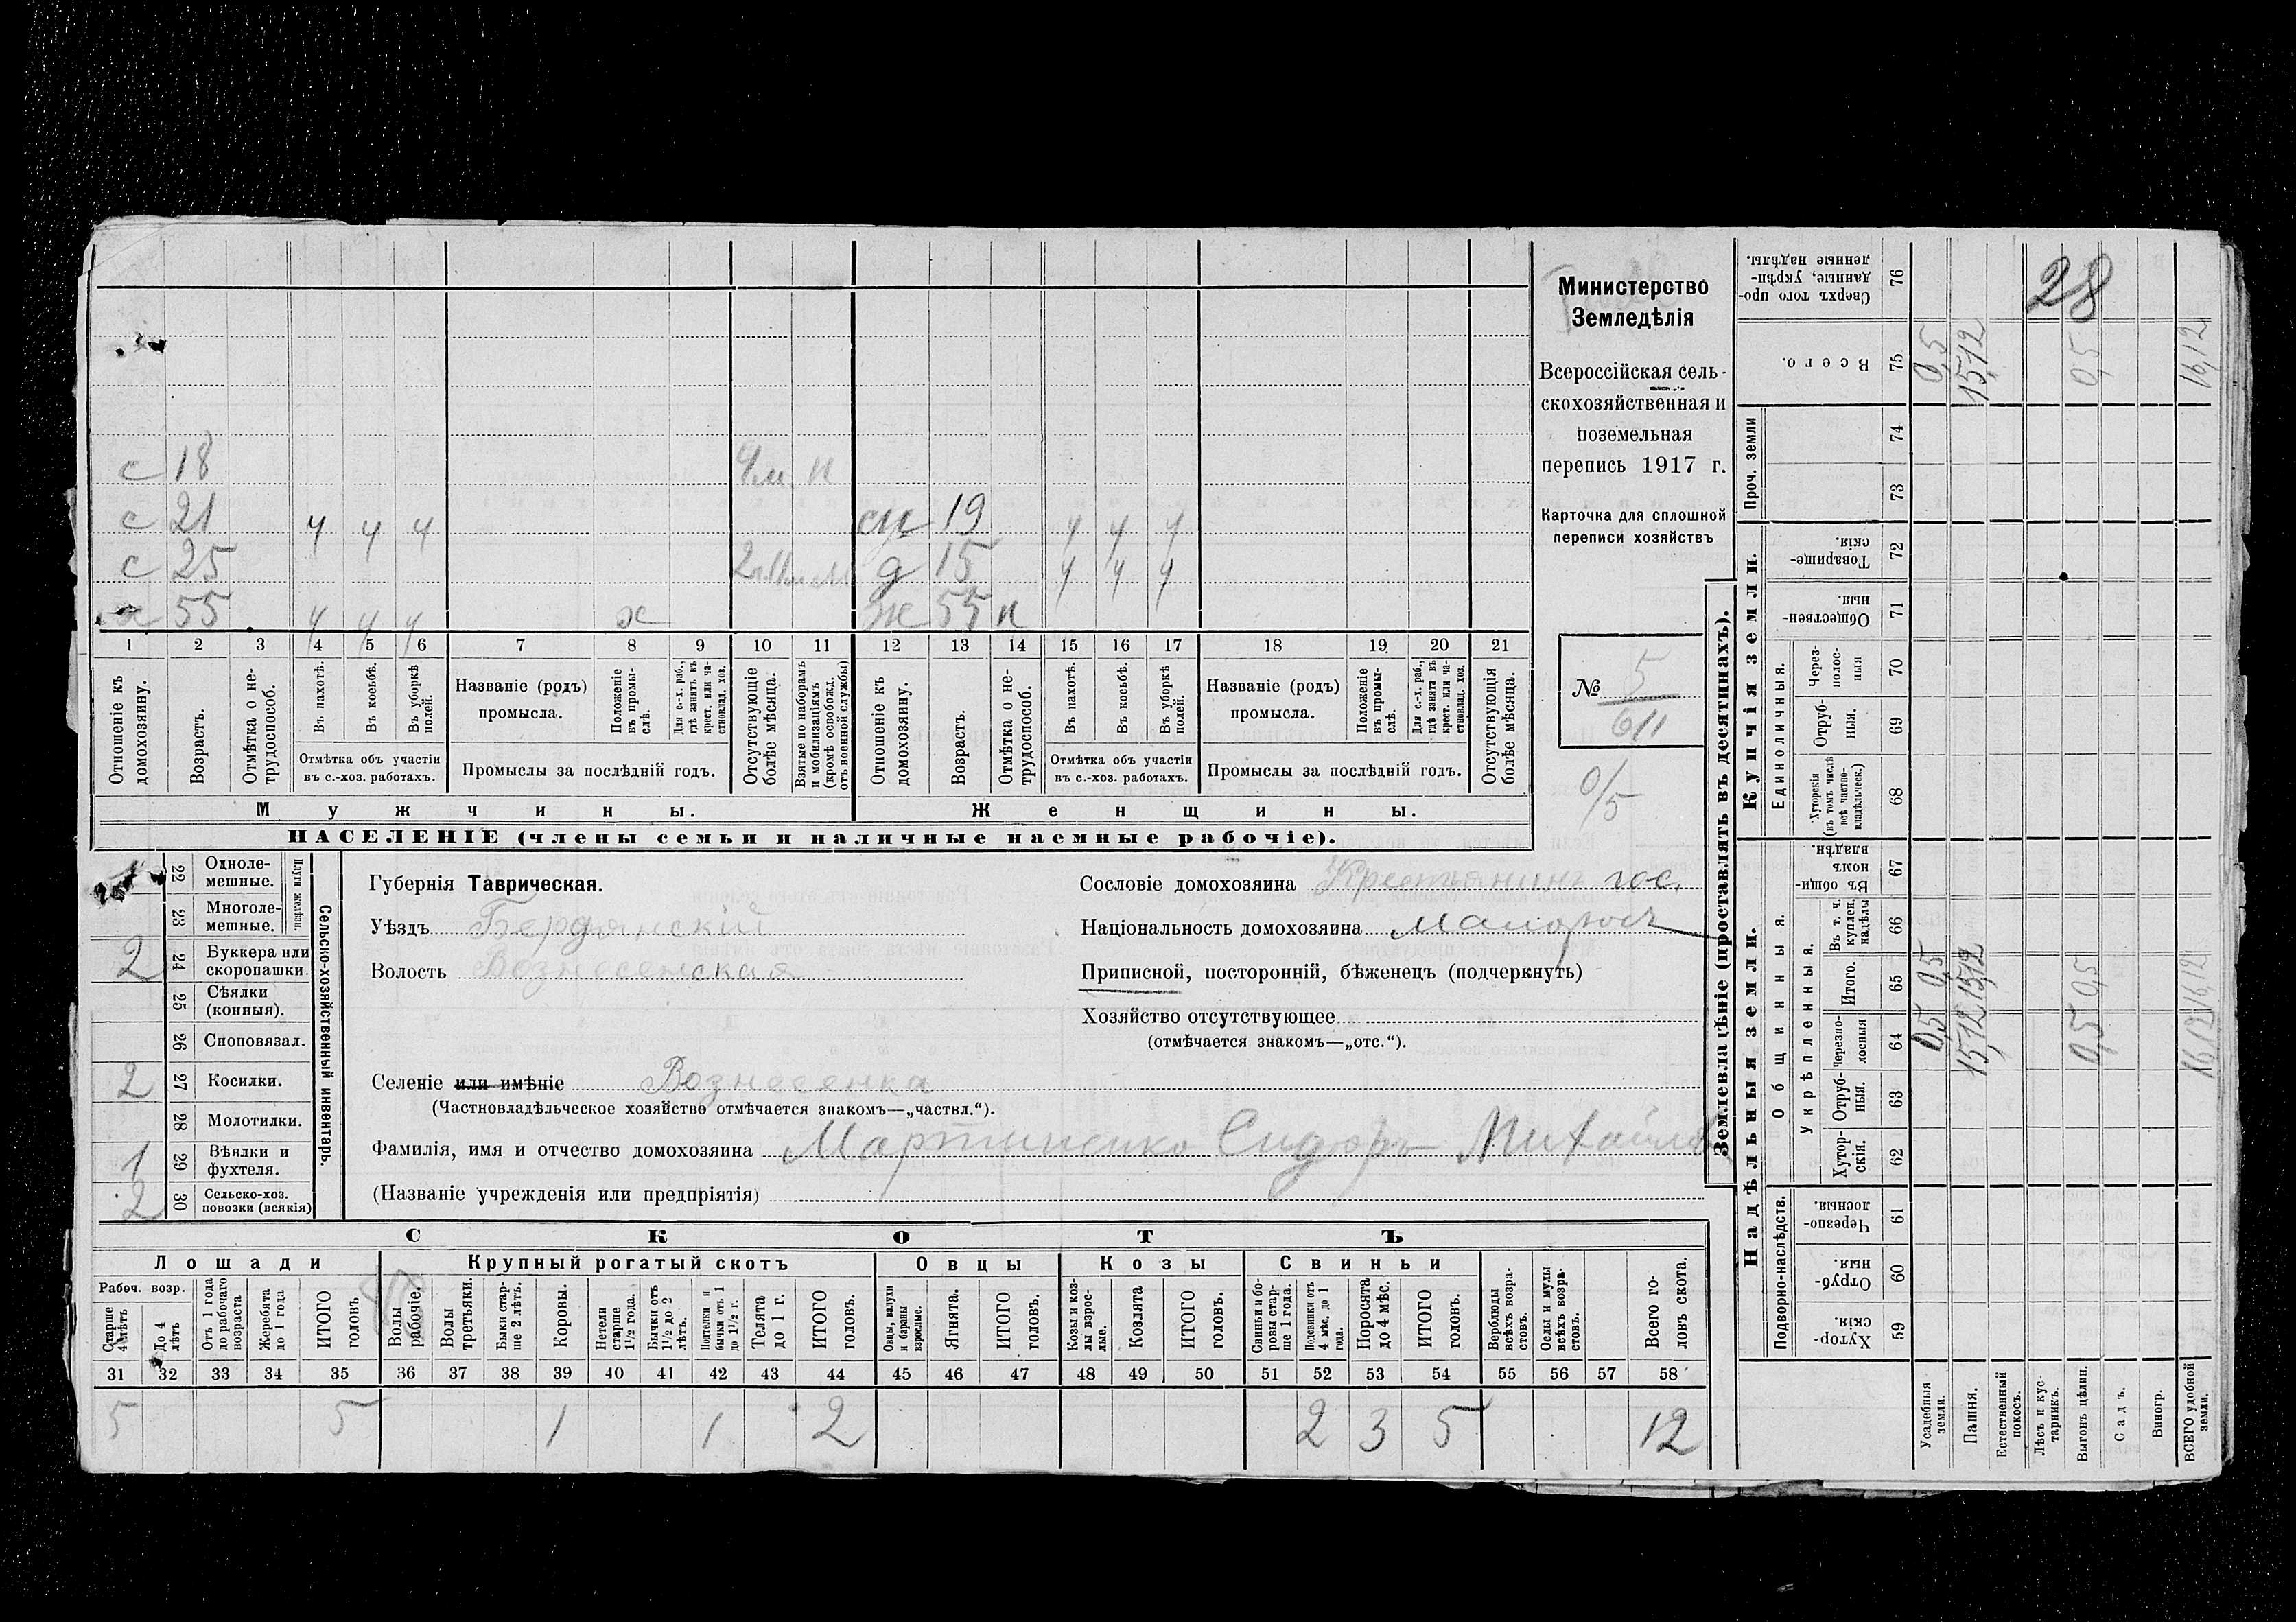 с 18 4м. н
с 21 ч ч ч сн 19 ч ч ч
с 25 д 15 ч ч ч
х 55 ч ч ч х ж 55 н
1 2 3 4 5 6 7 8 9 10 11 12 13 14 15 16 17 18 19 20 21
Отношеніе къ домохозяину.
Возрастъ.
Отмѣтка о не-трудоспособ.
Въ пахотѣ.
Въ косьбѣ.
Въ уборкѣ полей.
Отмѣтка объ участіи
въ с.-хоз. работахъ.
Названіе (родъ)
промысла.
Положеніе въ промы-слѣ.
Для с.-х. раб., гдѣ занятъ въ крест. или ча-стновлад. хоз.
Промыслы за послѣдній годъ.
Отсутствующіе болѣе мѣсяца.
Взятые по наборамъ и мобилизаціямъ (кромѣ освобожд. отъ военной службы)
Отношеніе къ домохозяину.
Возрастъ.
Отмѣтка о не-трудоспособ.
Въ пахотѣ.
Въ косьбѣ.
Въ уборкѣ полей.
Отмѣтка объ участіи
въ с.-хоз. работахъ.
Названіе (родъ)
промысла.
Положеніе въ промы-слѣ.
Для с.-х. раб., гдѣ занята въ крест. или ча-стновлад. хоз.
Промыслы за послѣдній годъ.
Отсутствующія болѣе мѣсяца.
Мужчины. Женщины.
НАСЕЛЕНІЕ (члены семьи и наличные наемные рабочіе).
Министерство
Земледѣлія
Всероссійская сель-
скохозяйственная и
поземельная
перепись 1917 г.
Карточка для сплошной
переписи хозяйствъ
№ 5
611
0/5
Сельско-хозяйственный инвентарь.
Плуги желѣзн.
22 Одноле-
мешные.
23 Многоле-
мешные.
2 24 Буккера или
скоропашки.
25 Сѣялки
(конныя).
26 Сноповязал.
2 27 Косилки.
28 Молотилки.
1 29 Вѣялки и
фухтеля.
2 30 Сельско-хоз.
повозки (всякія)
Губернія Таврическая.
Уѣздъ Бердянскій
Волость Вознесенская
Сословіе домохозяина Крестьянинъ гос.
Національность домохозяина малороссъ
Приписной, посторонній, бѣженецъ (подчеркнуть)
Хозяйство отсутствующее
(отмѣчается знакомъ—„отс.“).
Селеніе или имѣніе Вознесенка
(Частновладѣльческое хозяйство отмѣчается знакомъ—„частвл.“).
Фамилія, имя и отчество домохозяина Мартиненко Сидоръ Михайлов
(Названіе учрежденія или предпріятія)
СКОТЪ
Лошади Крупный рогатый скотъ Овцы Козы Свиньи
Рабоч. возр.
Старше 4 лѣтъ
До 4 лѣтъ
Отъ 1 года до рабочаго возраста
Жеребята до 1 года
ИТОГО головъ
Волы рабочіе.
Волы третьяки.
Быки стар-ше 2 лѣтъ.
Коровы.
Нетели старше 1½ года.
Бычки отъ 1½ до 2 лѣтъ.
Подтелки и бычки отъ 1 до 1½ г.
Телята до 1 г.
ИТОГО головъ.
Овцы, валухи и бараны взрослые.
Ягнята.
ИТОГО головъ.
Козы и коз-лы взрос-лые.
Козлята
ИТОГО головъ.
Свиньи и бо-ровы стар-ше 1 года.
Подсвинки отъ 4 мѣс. до 1 года.
Поросята до 4 мѣс.
ИТОГО головъ.
Верблюды всѣхъ возра-стовъ.
Ослы и мулы всѣхъ возра-стовъ.
Всего го-ловъ скота.
31 32 33 34 35 36 37 38 39 40 41 42 43 44 45 46 47 48 49 50 51 52 53 54 55 56 57 58
5 5 1 1 2 2 3 5 12
Землевладѣніе (проставлять въ десятинахъ).
Надѣльныя земли. Купчія земли.
Подворно-наслѣдств.
Общинныя.
Укрѣпленныя.
Единоличныя.
Проч. земли
Хутор-скія. 59
Отруб-ныя. 60
Черезпо-лосныя. 61
Хутор-скія. 62
Отруб-ныя. 63
Черезпо-лосныя 64
Итого. 65
Въ т. ч. куплен. надѣлы 66
Въ общин-номъ владѣн. 67
Хуторскія (въ томъ числѣ всѣ частно-владѣльческ.) 68
Отруб-ныя. 69
Через-полос-ныя 70
Обществен-ныя. 71
Товарище-скія. 72
73
74
Всего. 75
Сверхъ того про-данные, укрѣп-ленные надѣлы. 76
Усадебныя земли. 0,5 0,5 0,5
Пашня. 15,12 15,12 15,12
Естественный покосъ.
Лѣсъ и кус-тарникъ.
Выгонъ цѣлин. 0,5 0,5 0,5
Садъ.
Виногр.
ВСЕГО удобной земли. 16,12 16,12 16,12
28